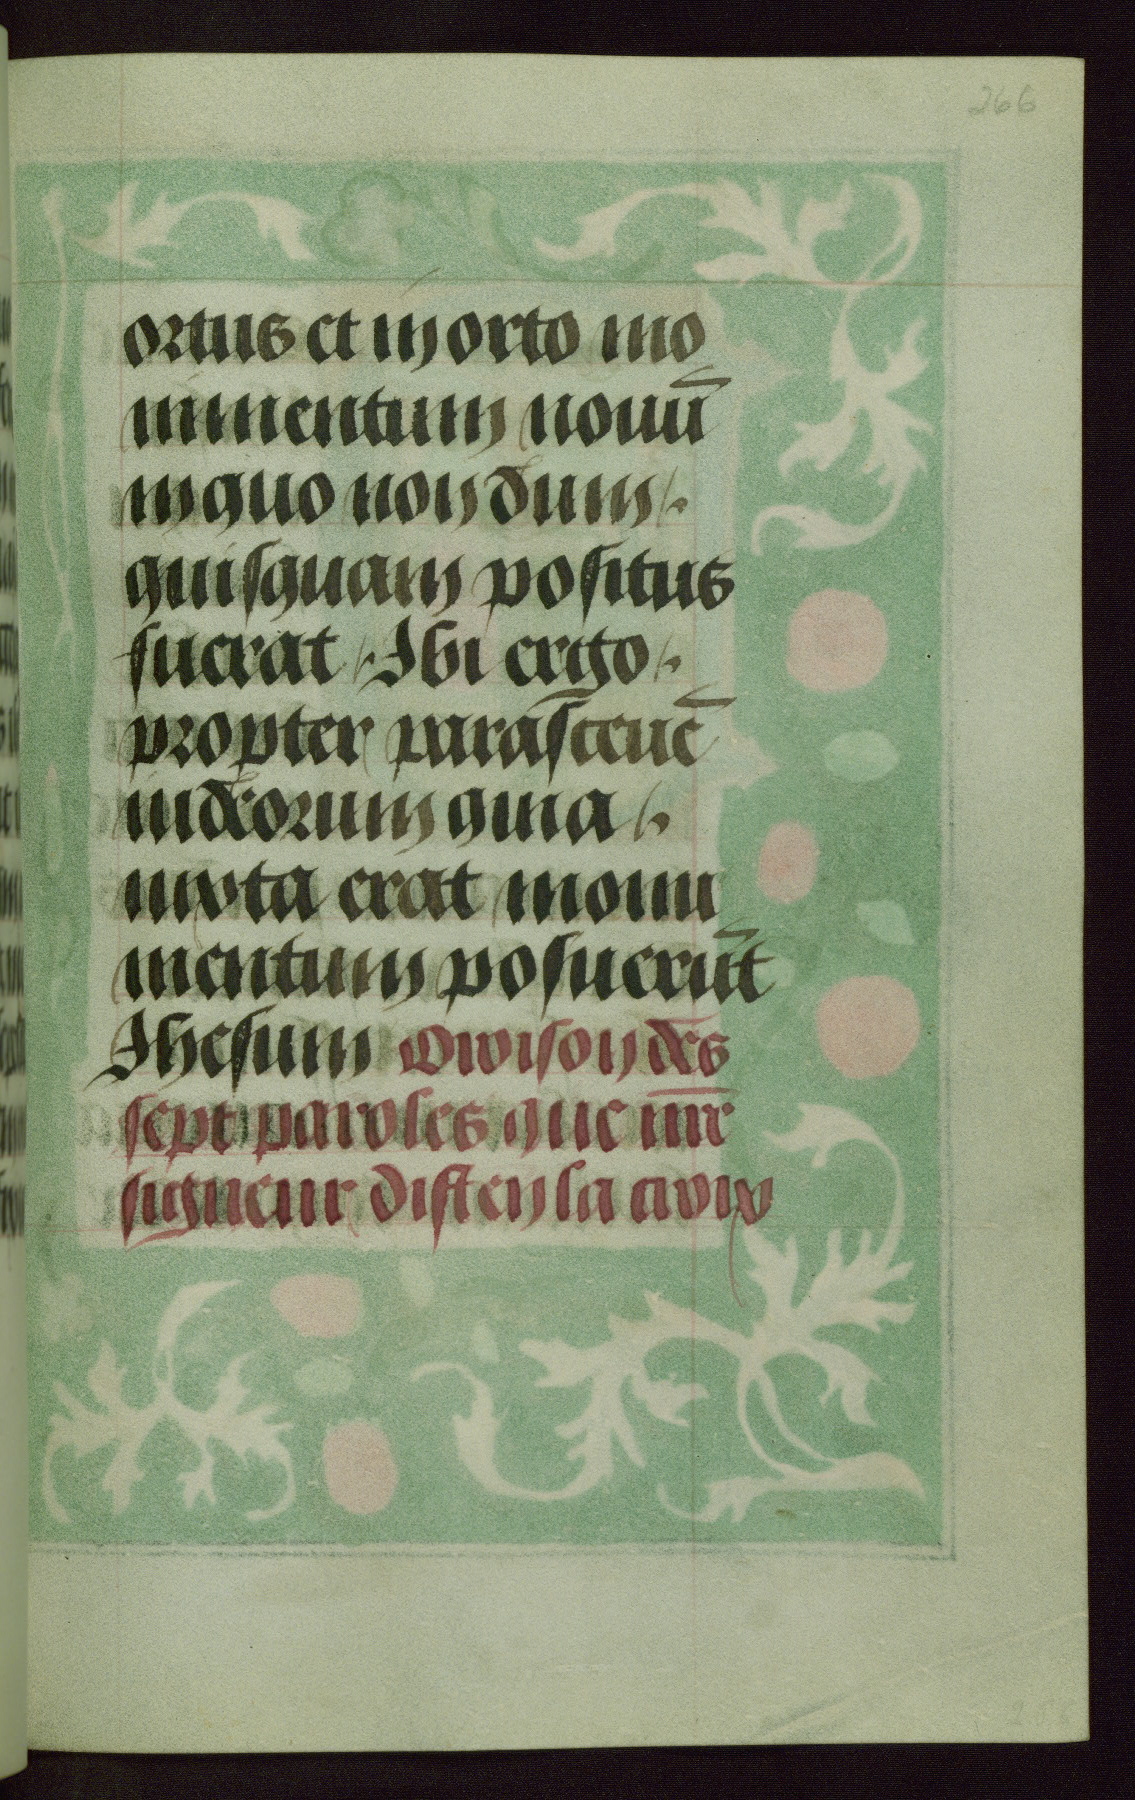 266
ortus et in orto mo
numentum nouū
in quo non dum
quisquam positus
fuerat Ibi ergo
propter parasceuē
iudeorum quia
iuxta erat monu
mentum posuerūt
Ihesum Oroison des
sept paroles que nr̄e
signeur dist en la croix